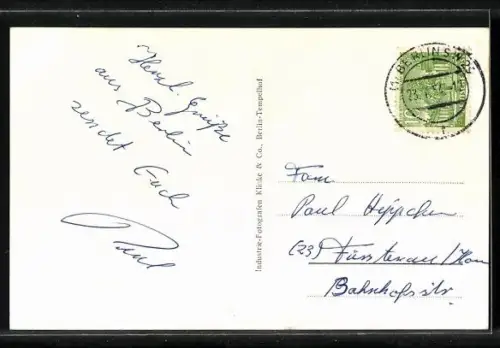 Herzl. Grüße
aus Berlin
sendet Euch
Paul
Industrie-Fotografen Klinke & Co., Berlin-Tempelhof
BERLIN SW
Fam.
Paul Heppchen
(23) Fürstenau/Han
Bahnhofstr